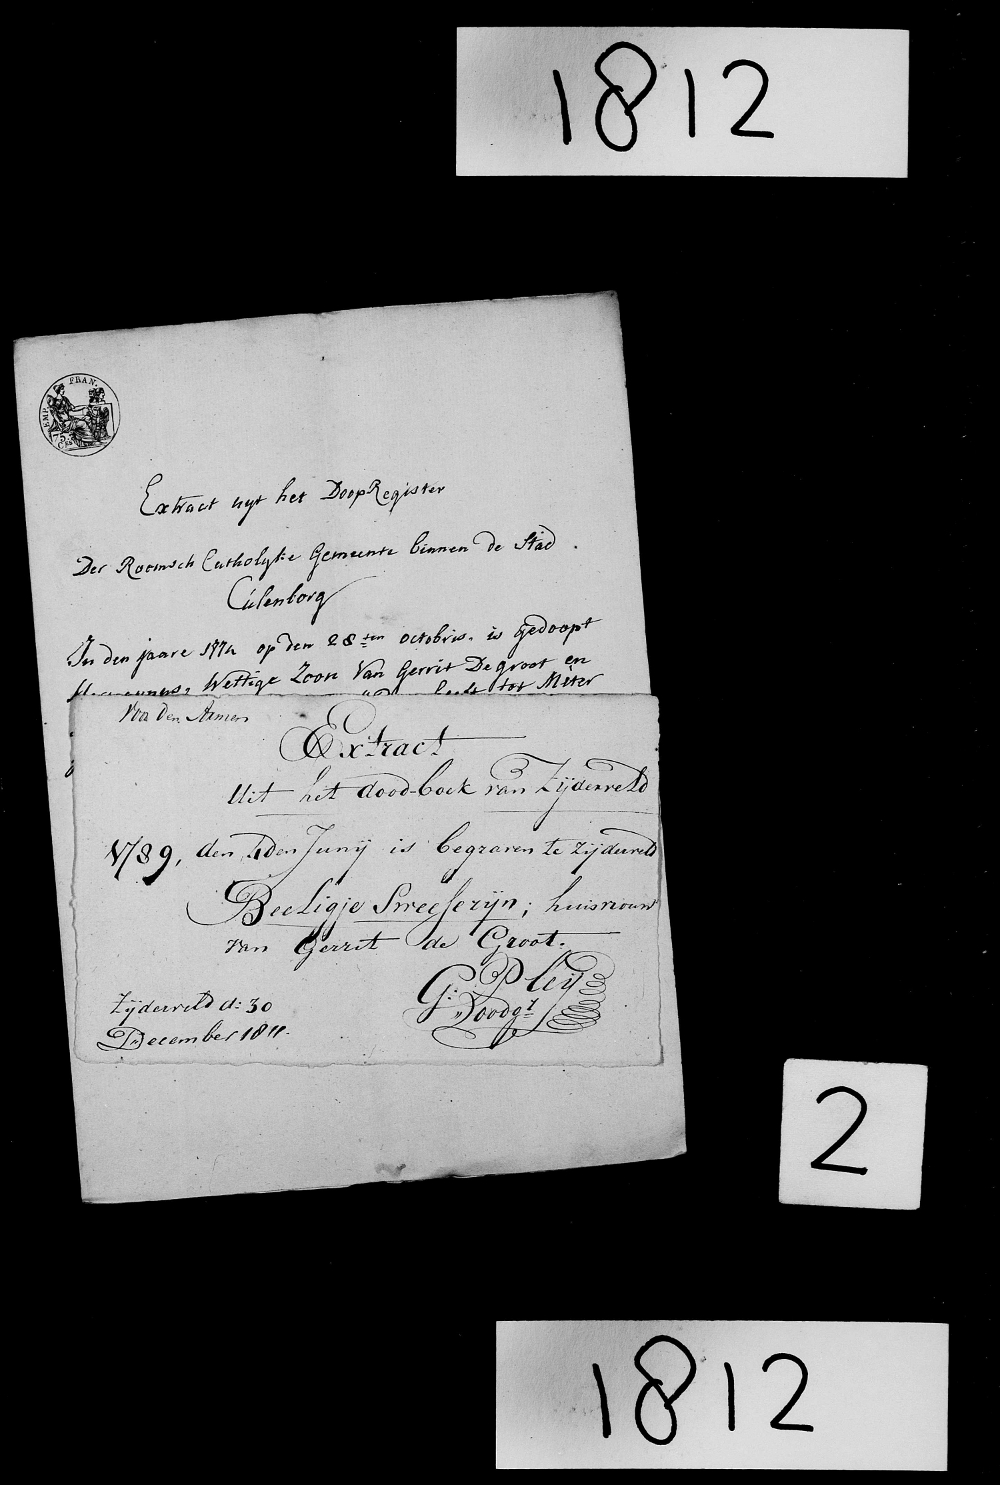 1812
EMP. FRAN.
75
Extract uyt het DoopRegister
Der Roomsch Catholyke Gemeente binnen de Stad
Culenborg
In den jaare 1774 op den 28sten octobris. is gedoopt
Wettige Zoon Van Gerrit De groot en
tot Meter
Voor den Armen
Extract
Uit het dood-boek van Zijderveld
1789, den 4den Junij is begraven te Zijderveld
Beeligje Sweeserijn; huisvrouw
van Gerrit de Groot.
G: Pleij
Doodgr
Zijderveld d: 30
December 1811.
2
1812